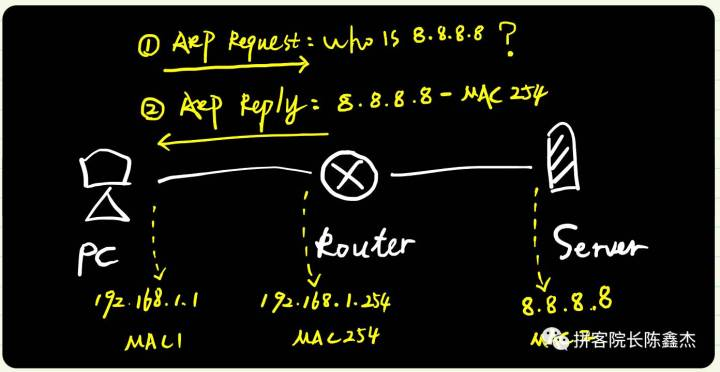 ① ARP Request: who is 8.8.8.8 ?
② ARP Reply: 8.8.8.8 - MAC 254
PC
Router
Server
192.168.1.1
192.168.1.254
8.8.8.8
MAC1
MAC254
拼客院长陈鑫杰